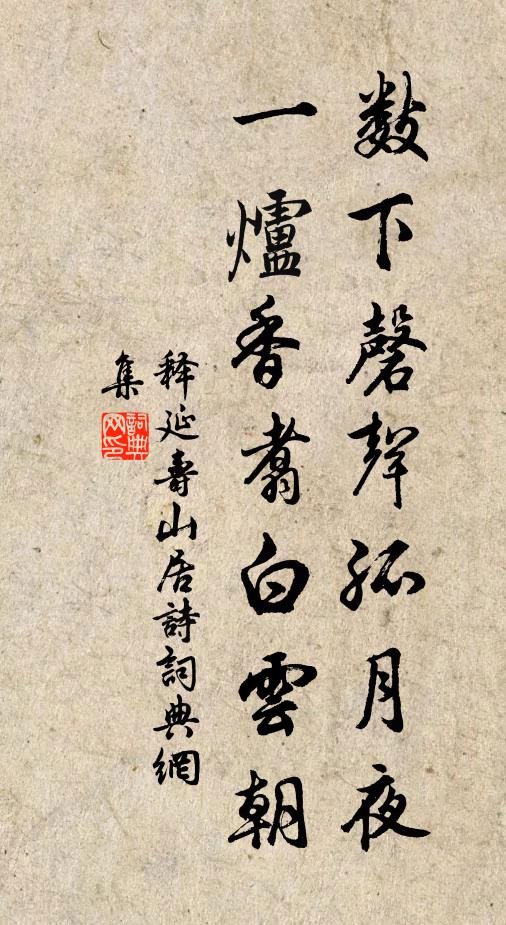 数下磬聲孤月夜
一爐香翥白雲朝
释延壽山居詩詞典網
集
詞典
网印